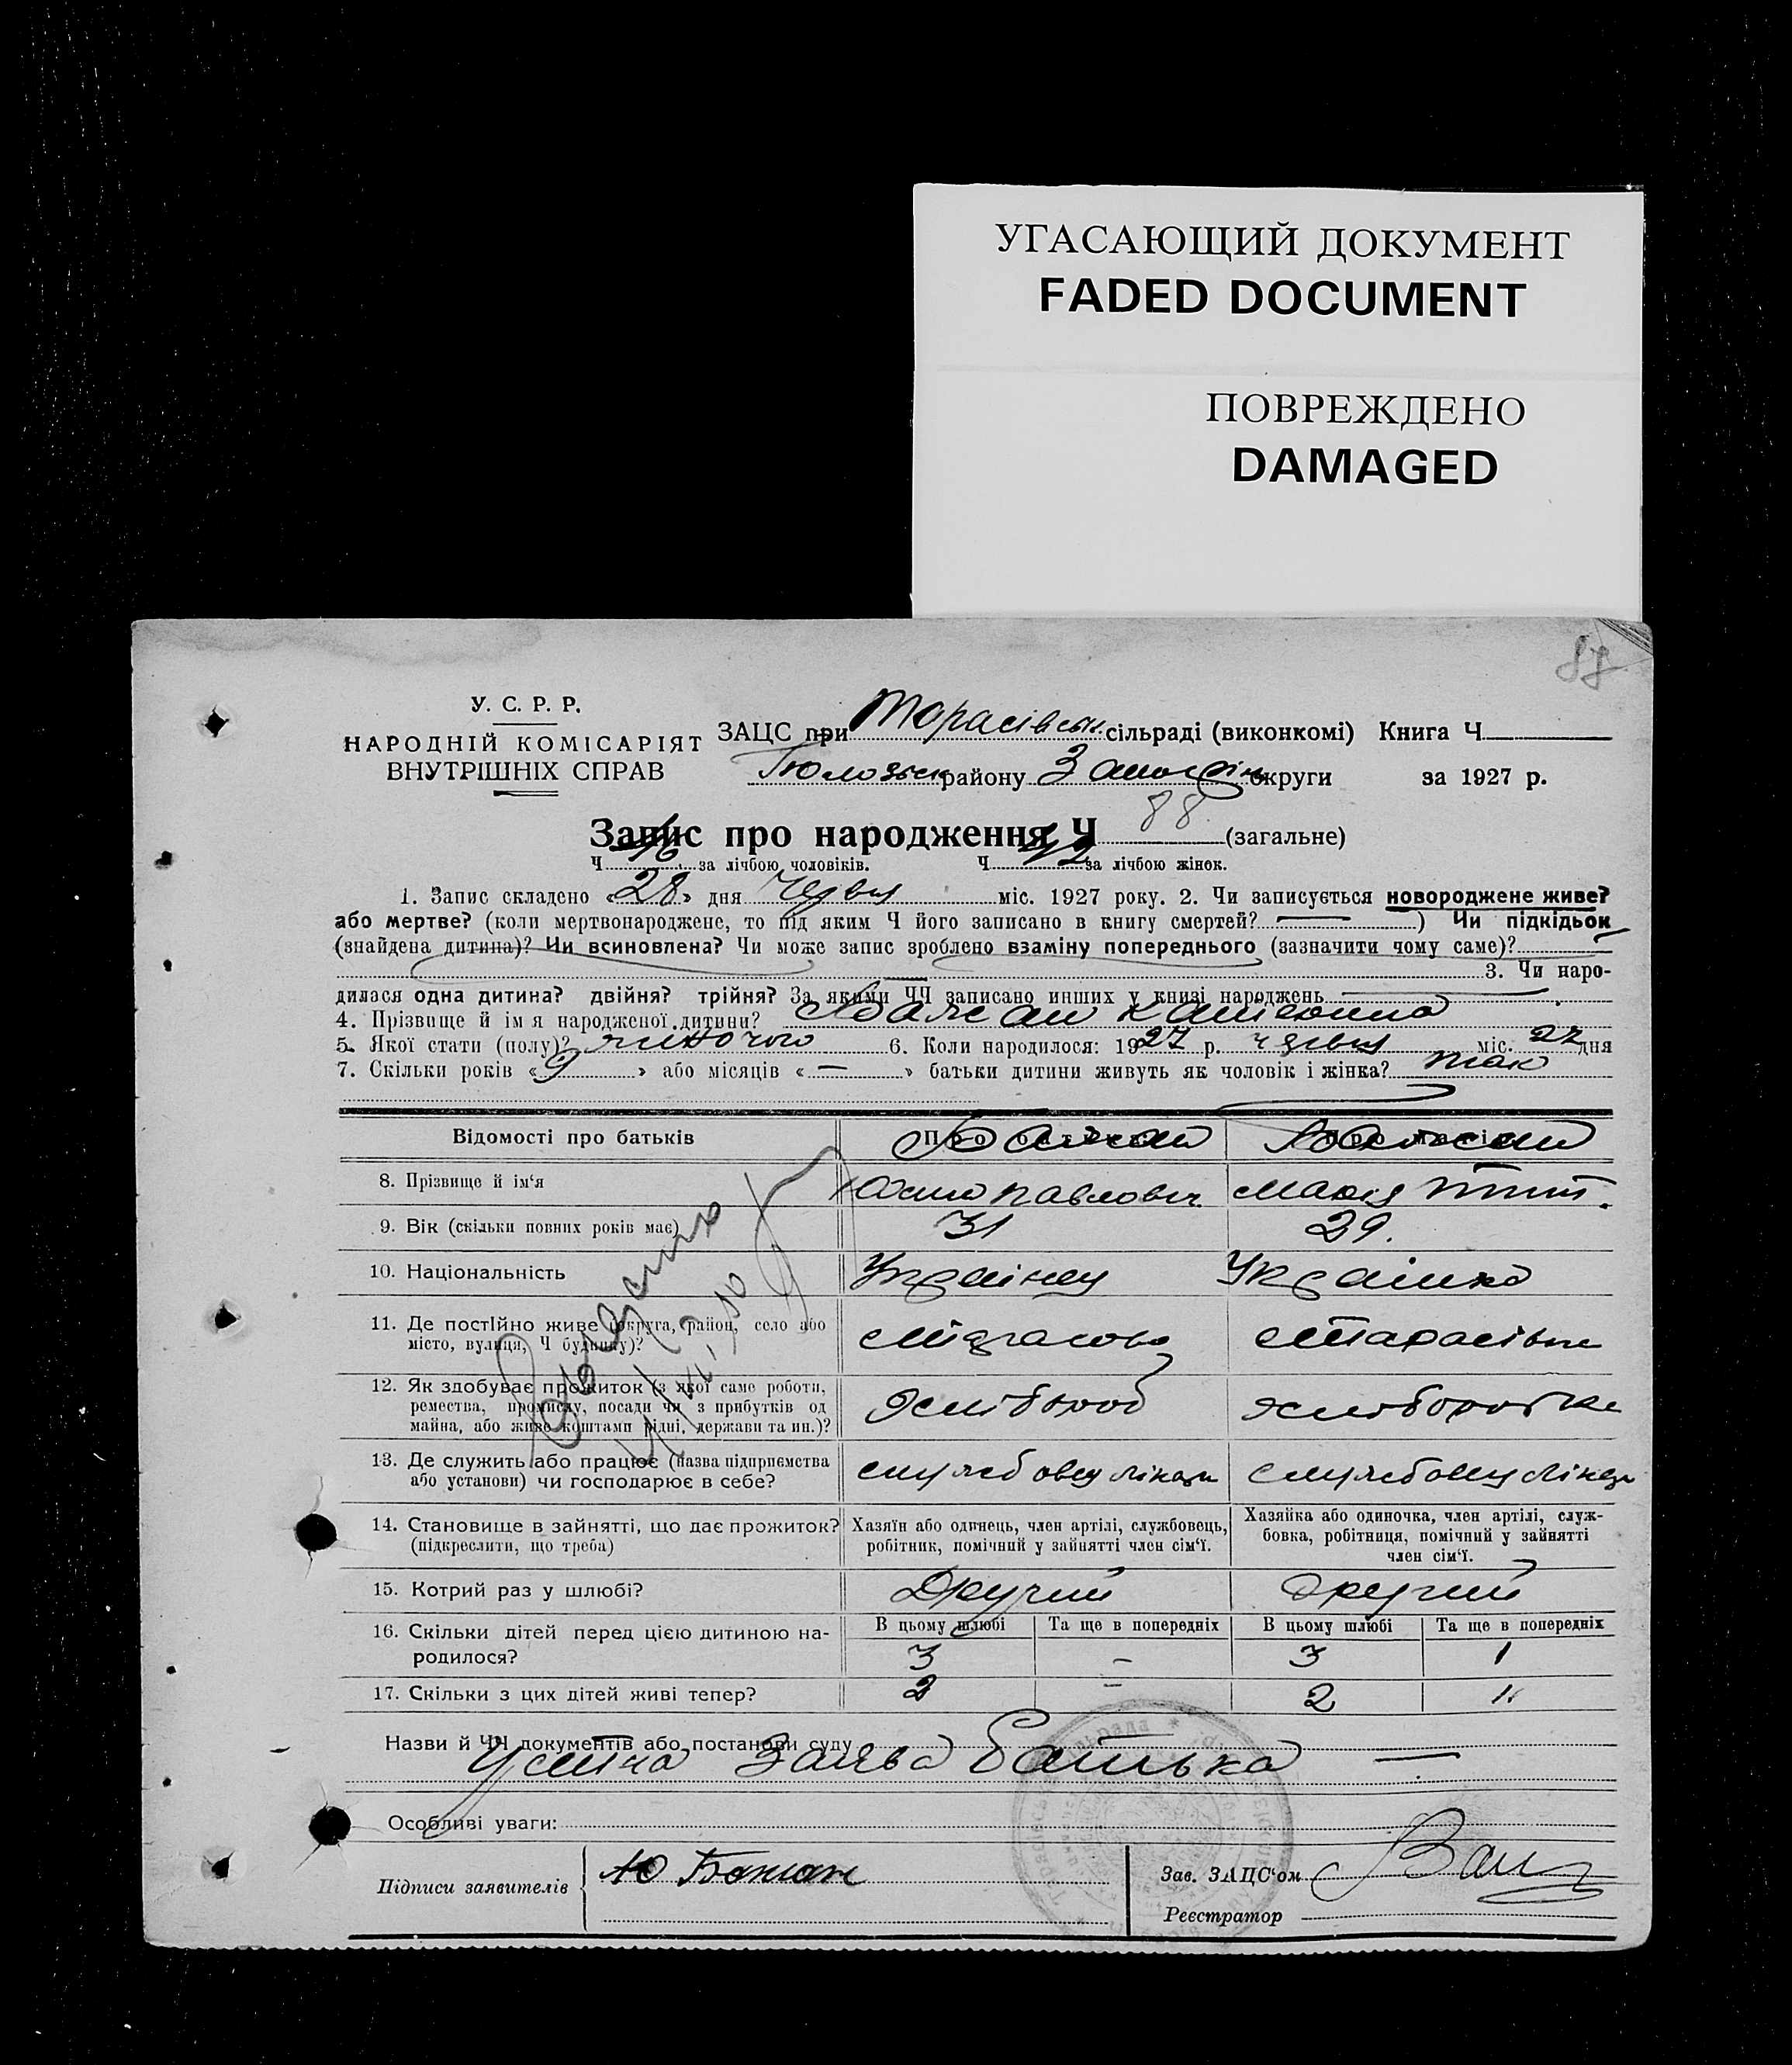 УГАСАЮЩИЙ ДОКУМЕНТ
FADED DOCUMENT
ПОВРЕЖДЕНО
DAMAGED
У. С. Р. Р.
НАРОДНІЙ КОМІСАРІЯТ
ВНУТРІШНІХ СПРАВ
ЗАЦС при Торасівськ. сільраді (виконкомі) Книга Ч
району округи за 1927 р.
Запис про народження Ч 88 (загальне)
Ч 46 за лічбою чоловіків. Ч 42 за лічбою жінок.
1. Запис складено «28» дня міс. 1927 року. 2. Чи записується новороджене живе?
або мертве? (коли мертвонароджене, то під яким Ч його записано в книгу смертей? —) Чи підкідьок
(знайдена дитина)? Чи всиновлена? Чи може запис зроблено взаміну попереднього (зазначити чому саме)?
3. Чи наро-
дилася одна дитина? двійня? трійня? За якими ЧЧ записано инших у книзі народжень
4. Прізвище й ім'я народженої дитини? Бажан
5. Якої стати (полу)? жіночого 6. Коли народилося: 1927 р. червня міс. 27 дня
7. Скільки років «9» або місяців «—» батьки дитини живуть як чоловік і жінка? так
Відомості про батьків Бажан Бажан
8. Прізвище й ім'я Павлович Марія
9. Вік (скільки повних років має) 31 29.
10. Національність Українец Українка
11. Де постійно живе (округа, район, село або
місто, вулиця, Ч будинку)?
12. Як здобуває прожиток (з якої саме роботи,
ремества, промислу, посади чи з прибутків од
майна, або живе коштами рідні, держави та ин.)? Хлібороб
13. Де служить або працює (назва підприємства
або установи) чи господарює в себе?
14. Становище в зайнятті, що дає прожиток?
(підкреслити, що треба)
Хазяїн або одинець, член артілі, службовець,
робітник, помічний у зайнятті член сім'ї.
Хазяйка або одиночка, член артілі, служ-
бовка, робітниця, помічний у зайнятті
член сім'ї.
15. Котрий раз у шлюбі? Другий Другий
16. Скільки дітей перед цією дитиною на-
родилося?
В цьому шлюбі Та ще в попередніх В цьому шлюбі Та ще в попередніх
3 – 3 1
17. Скільки з цих дітей живі тепер? 2 – 2 1
Назви й ЧЧ документів або постанови суду
Устна заява батька —
Особливі уваги:
Підписи заявителів Ю Бажан
Зав. ЗАЦС'ом
Реєстратор